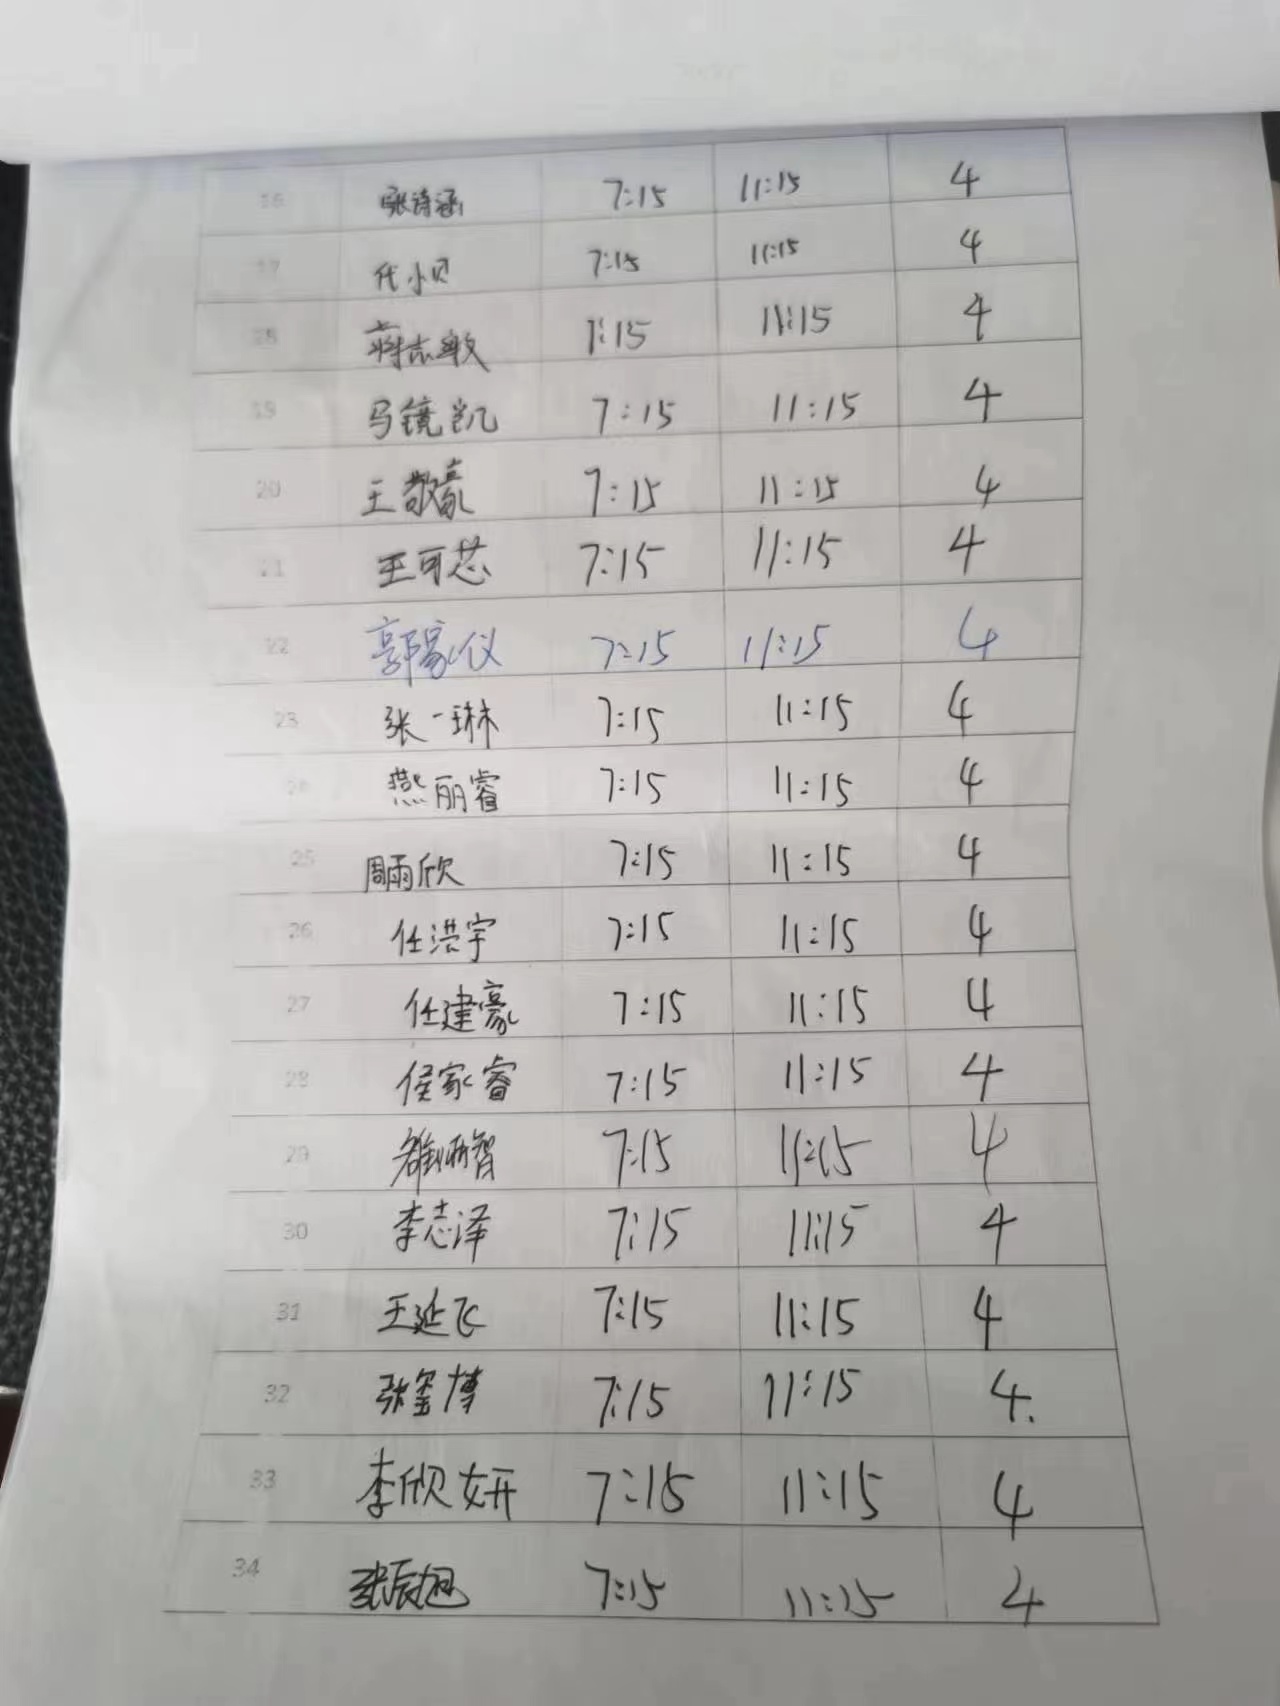 16 张诗涵 7:15 11:15 4
17 代小贝 7:15 11:15 4
18 蒋志敏 7:15 11:15 4
19 马镜凯 7:15 11:15 4
20 王敬豪 7:15 11:15 4
21 王可芯 7:15 11:15 4
22 郭家仪 7:15 11:15 4
23 张一琳 7:15 11:15 4
24 燕丽睿 7:15 11:15 4
25 周雨欣 7:15 11:15 4
26 任洪宇 7:15 11:15 4
27 任建豪 7:15 11:15 4
28 侯家睿 7:15 11:15 4
29 7:15 11:15 4
30 李志泽 7:15 11:15 4
31 王延飞 7:15 11:15 4
32 张玺博 7:15 11:15 4.
33 李欣妍 7:15 11:15 4
34 张辰旭 7:15 11:15 4